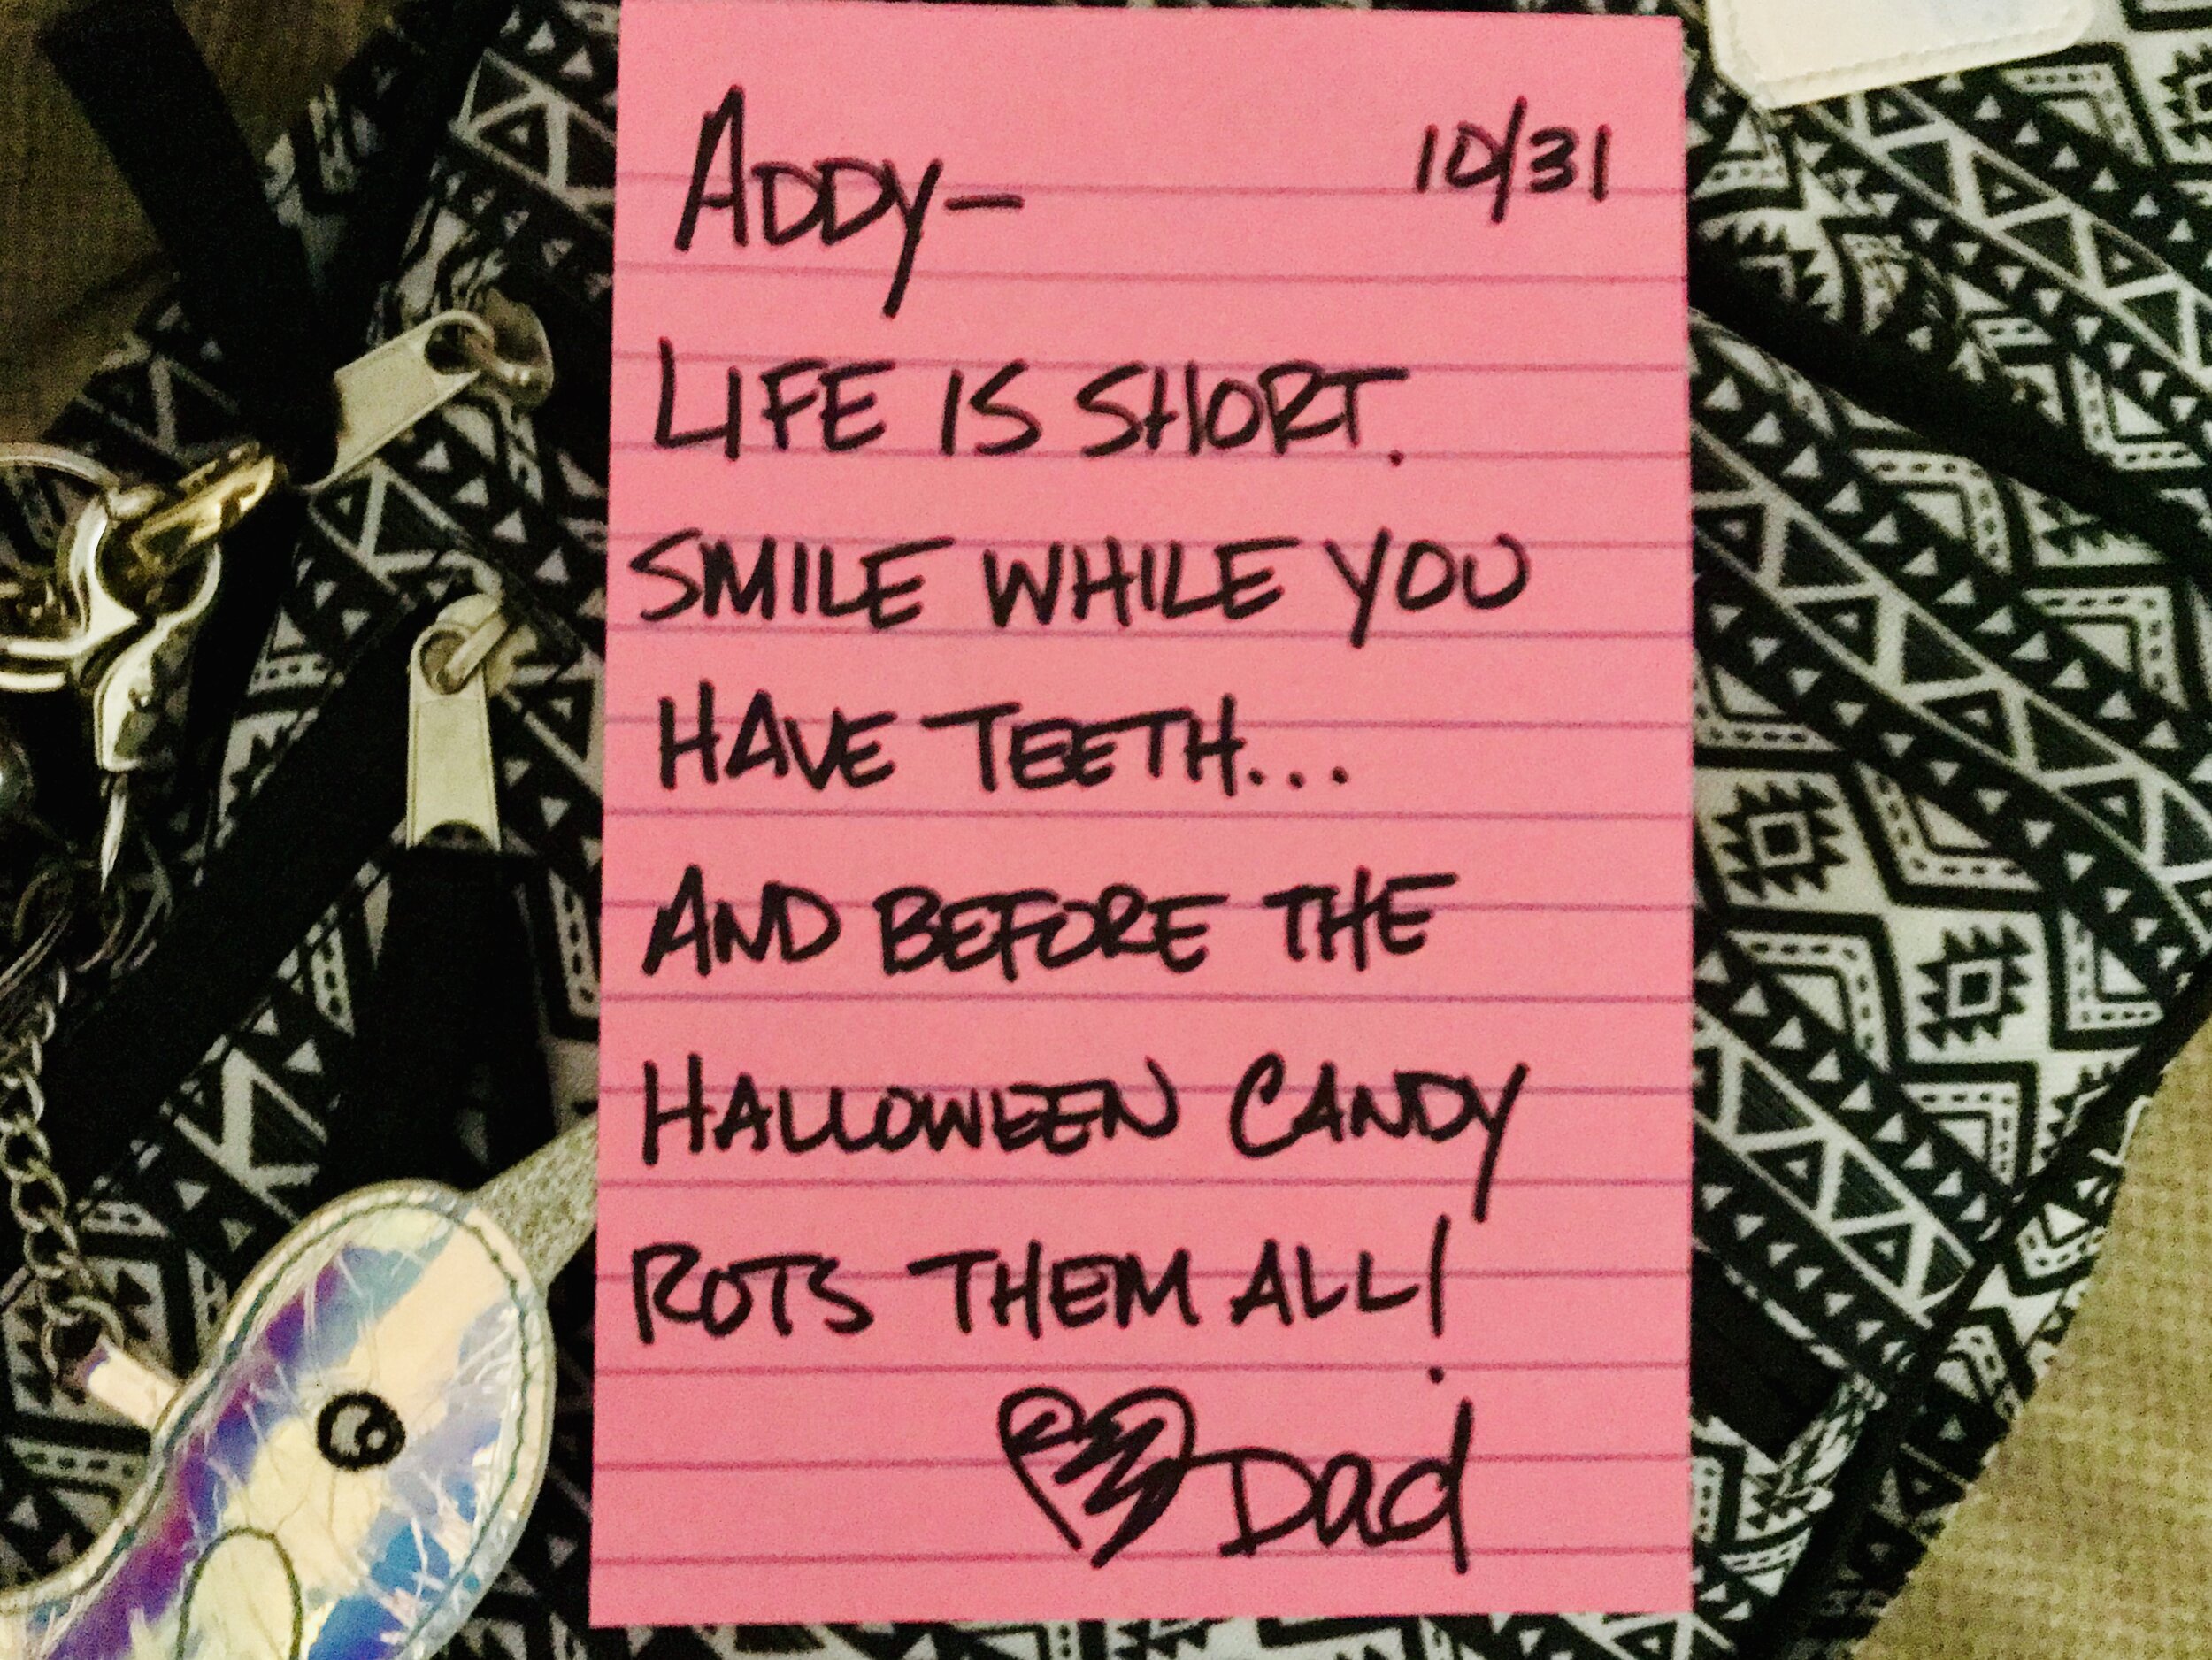 ADDY— 10/31
LIFE IS SHORT.
SMILE WHILE YOU
HAVE TEETH...
AND BEFORE THE
HALLOWEEN CANDY
ROTS THEM ALL!
Dad